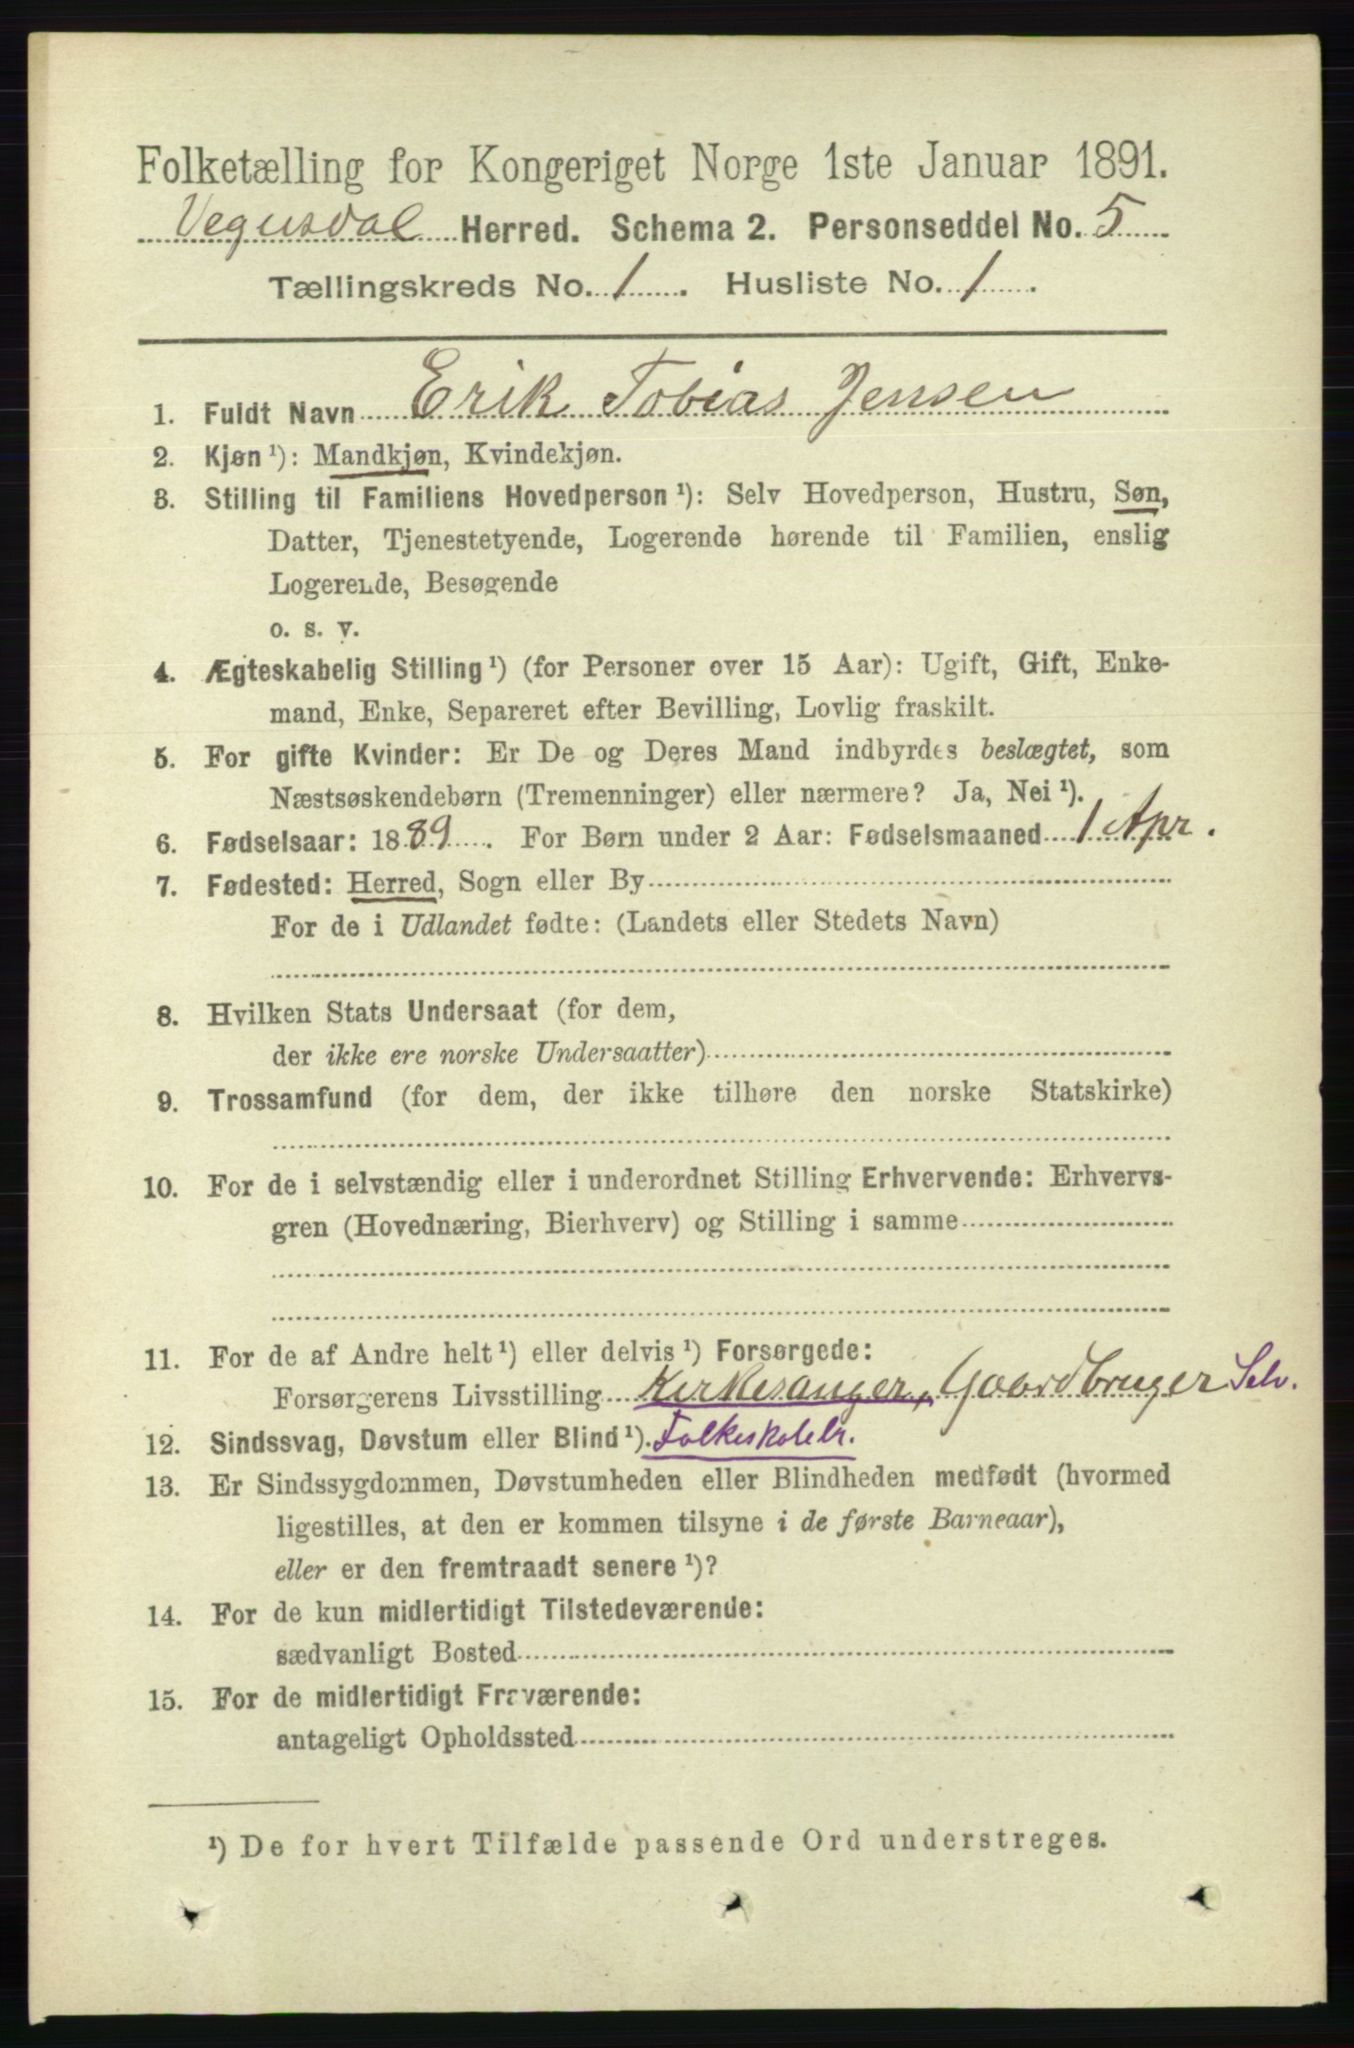 Folketælling for Kongeriget Norge 1ste Januar 1891.
Vegusdal Herred. Schema 2. Personseddel No. 5
Tællingskreds No. 1. Husliste No. 1.
1. Fuldt Navn Erik Tobias Jensen
2. Kjøn ¹): Mandkjøn, Kvindekjøn.
3. Stilling til Familiens Hovedperson ¹): Selv Hovedperson, Hustru, Søn,
Datter, Tjenestetyende, Logerende hørende til Familien, enslig
Logerende, Besøgende
o. s. v.
4. Ægteskabelig Stilling ¹) (for Personer over 15 Aar): Ugift, Gift, Enke-
mand, Enke, Separeret efter Bevilling, Lovlig fraskilt.
5. For gifte Kvinder: Er De og Deres Mand indbyrdes beslægtet, som
Næstsøskendebørn (Tremenninger) eller nærmere? Ja, Nei ¹).
6. Fødselsaar: 1889. For Børn under 2 Aar: Fødselsmaaned 1 Apr.
7. Fødested: Herred, Sogn eller By
For de i Udlandet fødte: (Landets eller Stedets Navn)
8. Hvilken Stats Undersaat (for dem,
der ikke ere norske Undersaatter)
9. Trossamfund (for dem, der ikke tilhøre den norske Statskirke)
10. For de i selvstændig eller i underordnet Stilling Erhvervende: Erhvervs-
gren (Hovednæring, Bierhverv) og Stilling i samme
11. For de af Andre helt ¹) eller delvis ¹) Forsørgede:
Forsørgerens Livsstilling Kirkesanger, Gaardbruger Selv.
12. Sindssvag, Døvstum eller Blind ¹). Folkeskolelr.
13. Er Sindssygdommen, Døvstumheden eller Blindheden medfødt (hvormed
ligestilles, at den er kommen tilsyne i de første Barneaar),
eller er den fremtraadt senere ¹)?
14. For de kun midlertidigt Tilstedeværende:
sædvanligt Bosted
15. For de midlertidigt Fraværende:
antageligt Opholdssted
¹) De for hvert Tilfælde passende Ord understreges.